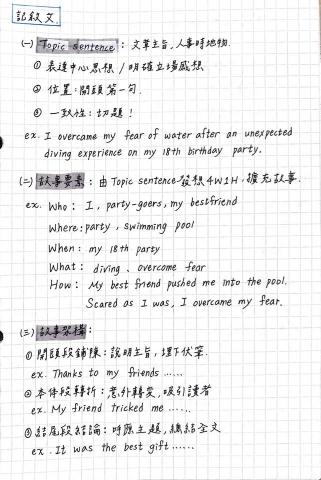 記敘文
(一) Topic sentence：文章主旨，人事時地物.
① 表達中心思想/明確立場感想
② 位置：開頭第一句.
③ 一致性：切題！
ex. I overcame my fear of water after an unexpected
diving experience on my 18th birthday party.
(二) 故事要素：由Topic sentence發想4W1H，擴充故事.
ex. Who： I, party-goers, my bestfriend
Where：party, swimming pool
When： my 18th party
What： diving、overcome fear
How： My best friend pushed me into the pool.
Scared as I was, I overcame my fear.
(三) 故事架構：
① 開頭段鋪陳：說明主旨，埋下伏筆.
ex. Thanks to my friends ......
② 本体段轉折：意外轉變，吸引讀者
ex. My friend tricked me ......
③ 結尾段結論：呼應主題，總結全文
ex. It was the best gift ......